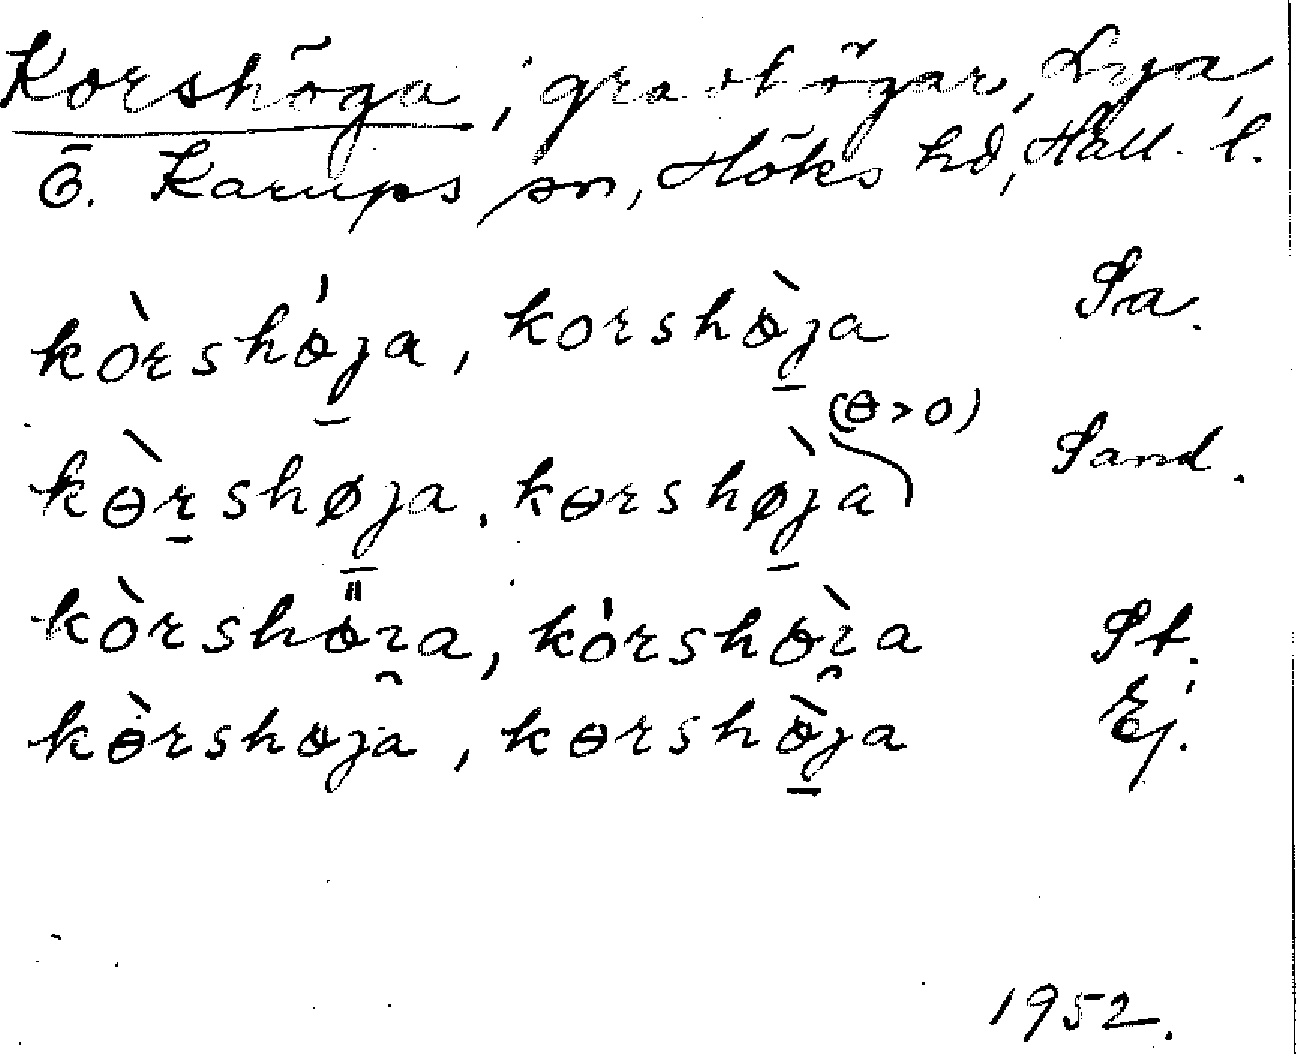 Korshöga, gravhögar, Lya,
Ö. Karups sn, Höks hd, Hall. l.
kòrshö́ja, korshö̀ja Sa.
(ɵ>o)
kɵ̀rshøja, kɵrshø̀ja Sand.
kòrshöra, kórshörà St.
kɵ̀rshöja, kɵrshö̀ja Ej.
1952.